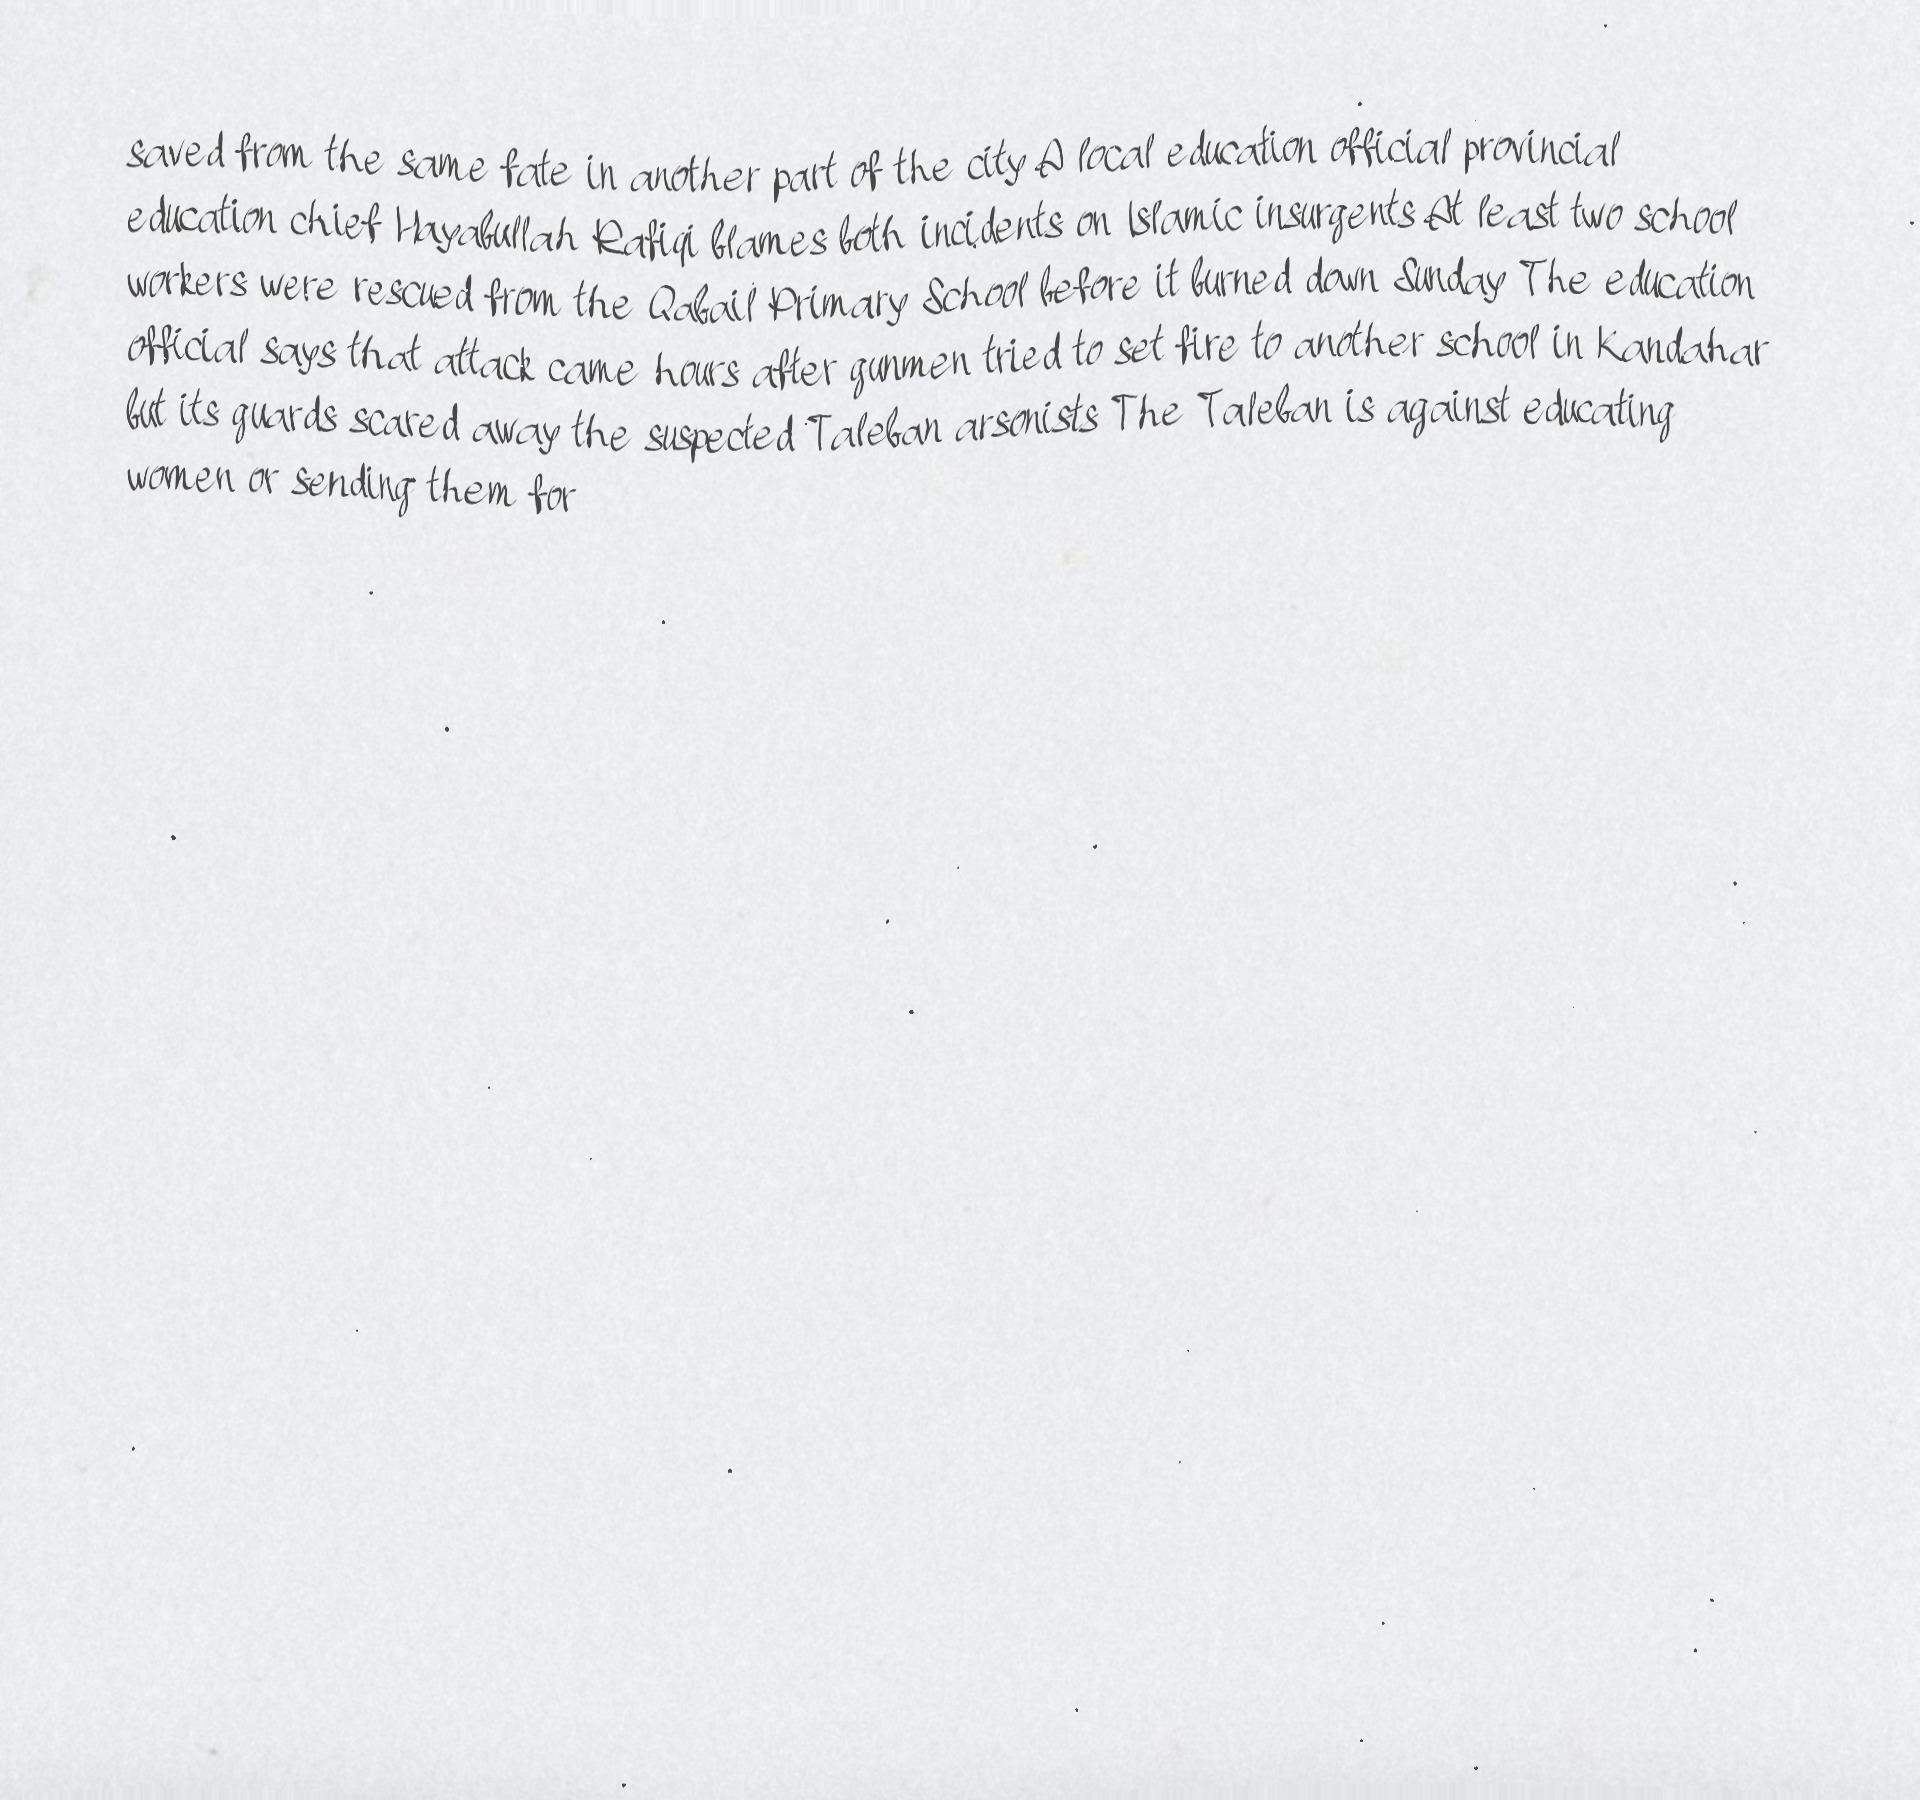 saved from the same fate in another part of the city A local education official provincial
education chief Hayabullah Rafiqi blames both incidents on Islamic insurgents At least two school
workers were rescued from the Qabail Primary School before it burned down Sunday The education
official says that attack came hours after gunmen tried to set fire to another school in Kandahar
but its guards scared away the suspected Taleban arsonists The Taleban is against educating
women or sending them for